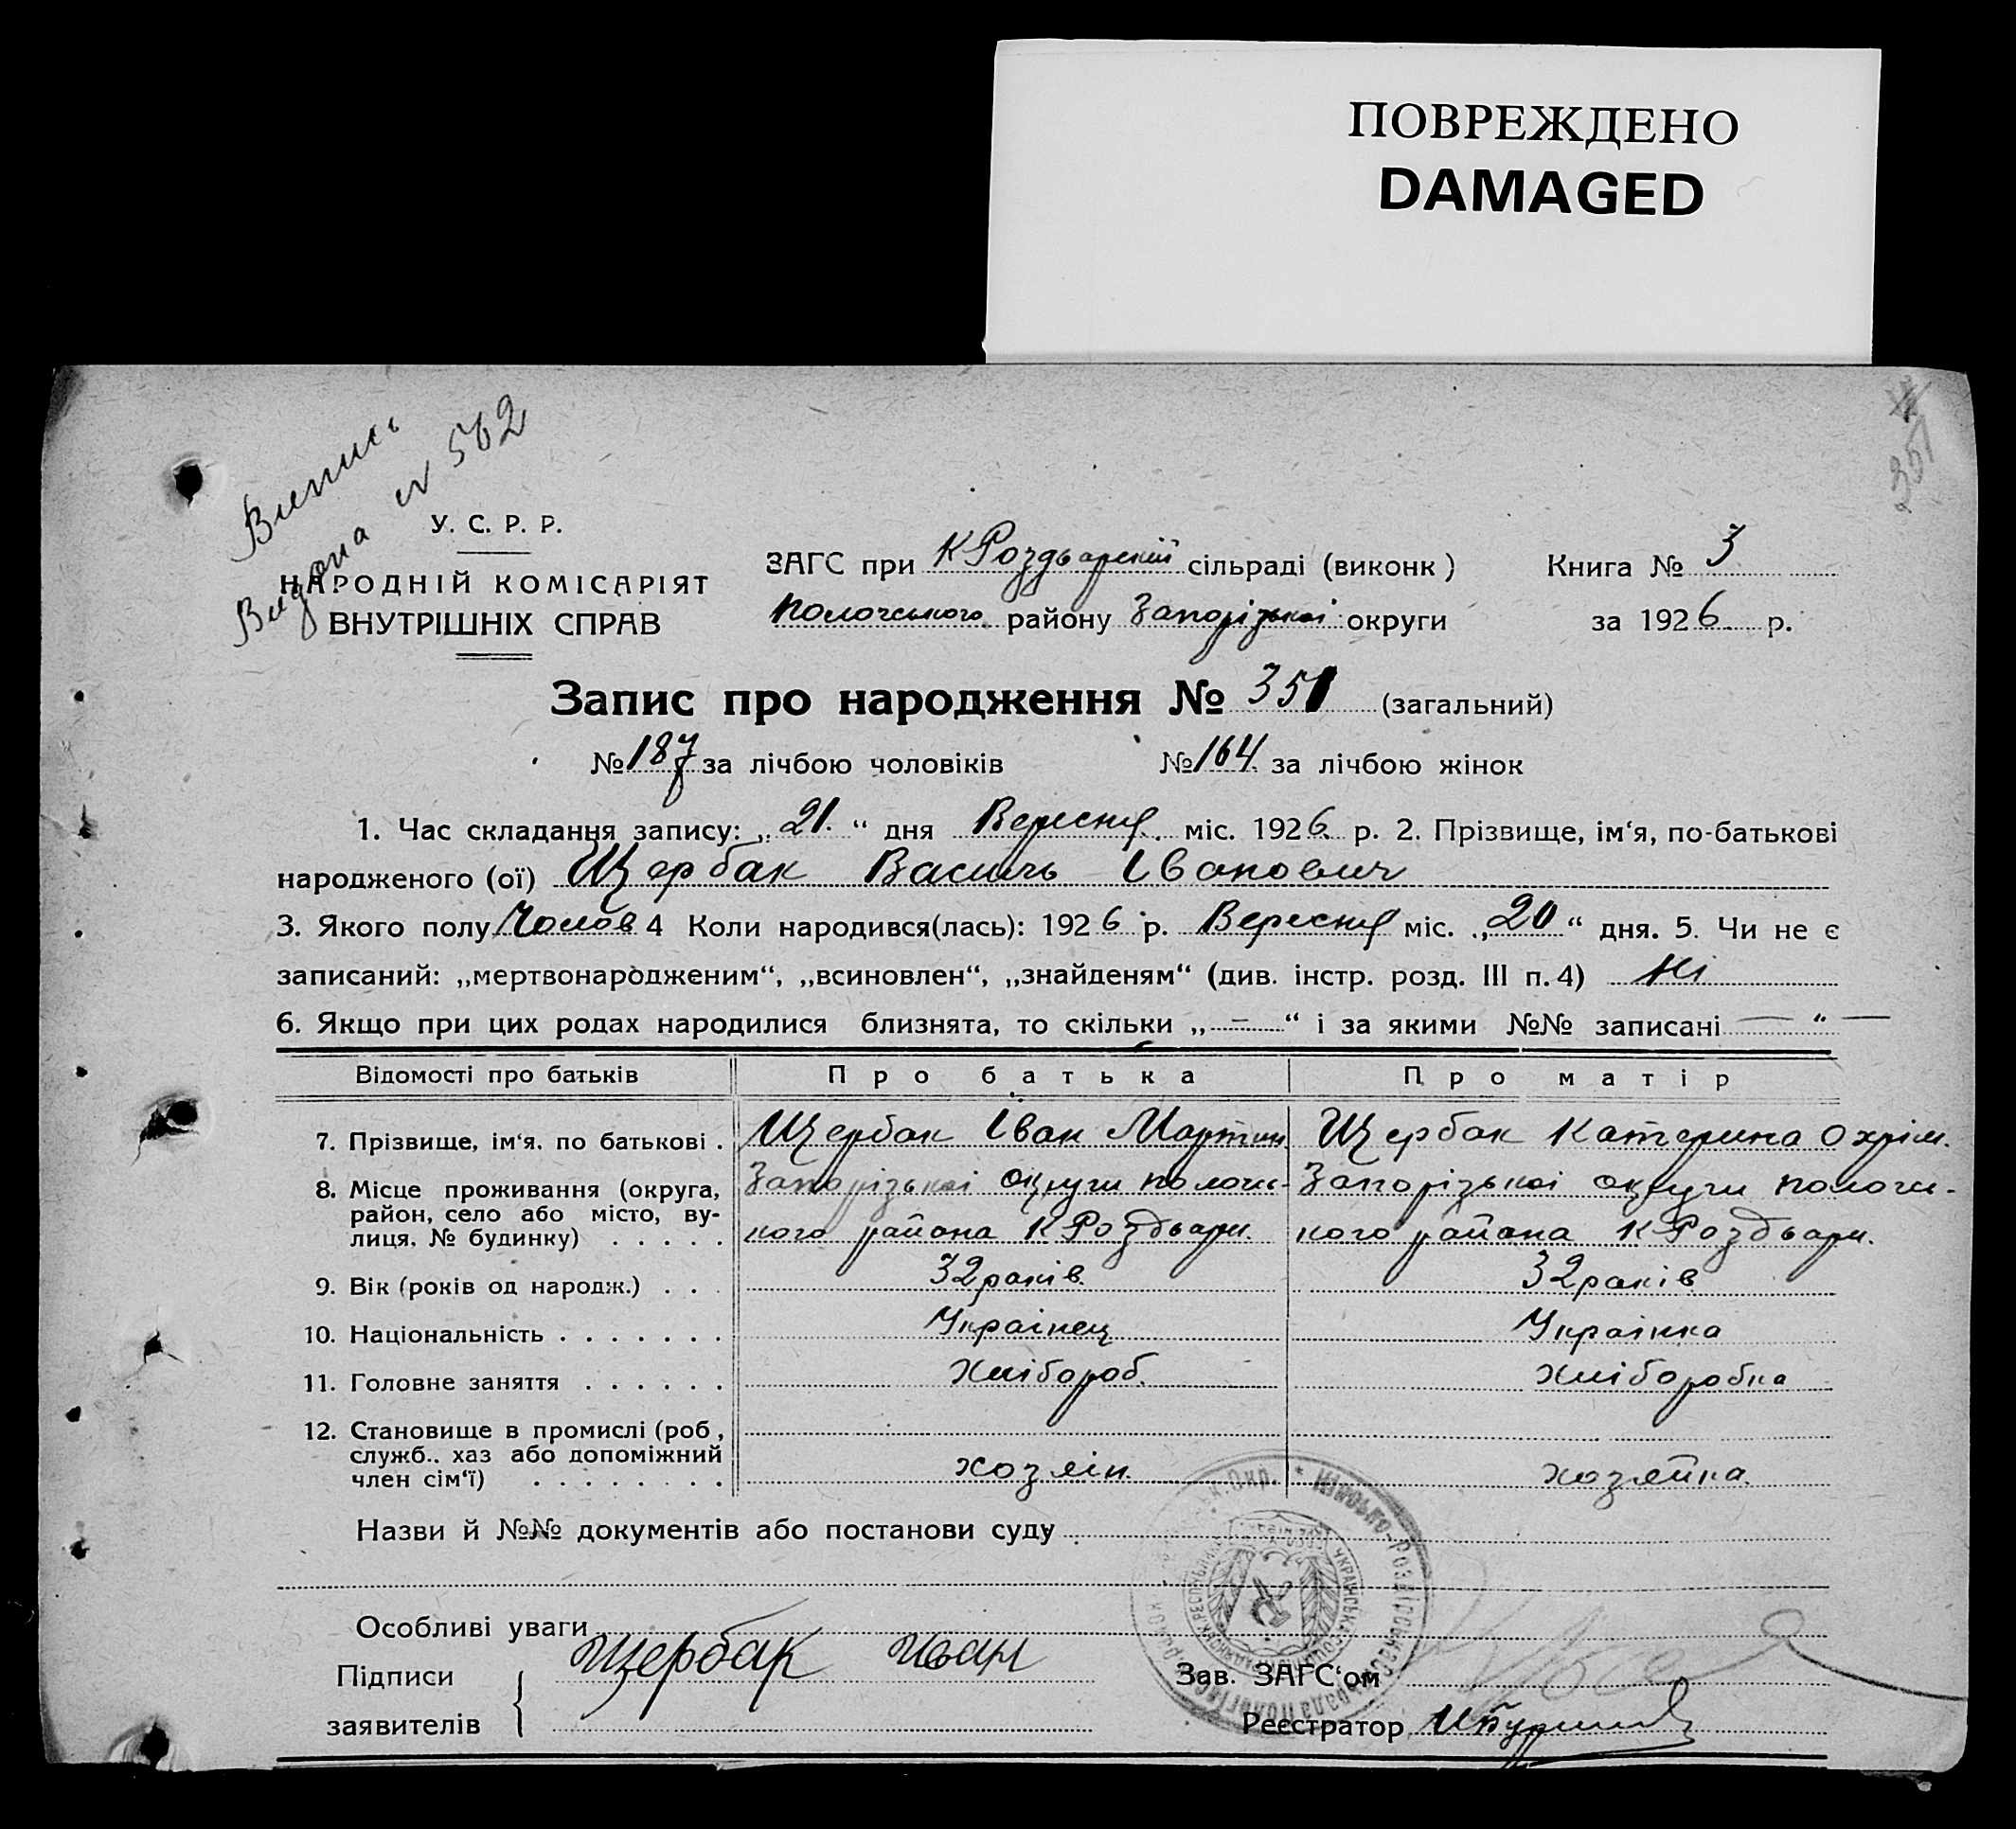 ПОВРЕЖДЕНО
DAMAGED
351
Випись
Видана № 562
У. С. Р. Р.
НАРОДНІЙ КОМІСАРІЯТ
ВНУТРІШНІХ СПРАВ
ЗАГС при К Роздьарский сільраді (виконк)
Пологського району Запорізької округи
Книга № 3
за 1926 р.
Запис про народження № 351 (загальний)
№ 187 за лічбою чоловіків № 164 за лічбою жінок
1. Час складання запису: „21.“ дня Вересня міс. 1926 р. 2. Прізвище, ім‘я, по-батькові
народженого (ої) Щербак Василь Іванович
3. Якого полу Чолов 4 Коли народився(лась): 1926 р. Вересня міс. „20“ дня. 5. Чи не є
записаний: „мертвонародженим“, „всиновлен“, „знайденям“ (див. інстр. розд. III п. 4) Ні
6. Якщо при цих родах народилися близнята, то скільки „ – “ і за якими №№ записані — “ —
Відомості про батьків Про батька Про матір
7. Прізвище, ім‘я, по батькові . Щербак Іван Мартин. Щербак Катерина Охрім.
8. Місце проживання (округа, Запорізькоі округи пологс- Запорізькоі округи пологс-
район, село або місто, ву-
лиця, № будинку) . . . . . кого района К Роздьари. кого района К Роздьари.
9. Вік (років од народж.) . . . 32 років. 32 років
10. Національність . . . . . . . Украінец Украінка
11. Головне заняття . . . . . . Хлібороб. Хліборобка
12. Становище в промислі (роб ,
служб.. хаз або допоміжний
член сім‘ї) . . . . . . . . хозяін. хозяйка.
Назви й №№ документів або постанови суду
Особливі уваги
Підписи Щербак Иван
заявителів
Зав. ЗАГС‘ом
Реєстратор